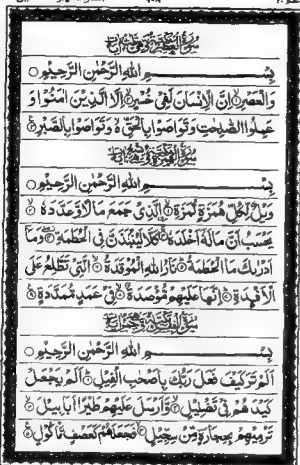 بِسْمِ اللهِ الرَّحْمٰنِ الرَّحِيْمِ ○
وَالْعَصْرِ ۙ اِنَّ الْاِنْسَانَ لَفِيْ خُسْرٍ ۙ اِلَّا الَّذِيْنَ اٰمَنُوْا وَ
عَمِلُوا الصّٰلِحٰتِ وَتَوَاصَوْا بِالْحَقِّ ۙ وَتَوَاصَوْا بِالصَّبْرِ
بِسْمِ اللهِ الرَّحْمٰنِ الرَّحِيْمِ ○
وَيْلٌ لِّكُلِّ هُمَزَةٍ لُّمَزَةٍ ۙ الَّذِيْ جَمَعَ مَالًا وَّعَدَّدَهٗ
يَحْسَبُ اَنَّ مَالَهٗٓ اَخْلَدَهٗ ۚ كَلَّا لَيُنْۢبَذَنَّ فِي الْحُطَمَةِ ۖ وَمَآ
اَدْرٰىكَ مَا الْحُطَمَةُ ۗ نَارُ اللهِ الْمُوْقَدَةُ ۙ الَّتِيْ تَطَّلِعُ عَلَى
الْاَفْـِٕدَةِ ۗ اِنَّهَا عَلَيْهِمْ مُّؤْصَدَةٌ ۙ فِيْ عَمَدٍ مُّمَدَّدَةٍ
بِسْمِ اللهِ الرَّحْمٰنِ الرَّحِيْمِ ○
اَلَمْ تَرَ كَيْفَ فَعَلَ رَبُّكَ بِاَصْحٰبِ الْفِيْلِ ۗ اَلَمْ يَجْعَلْ
كَيْدَهُمْ فِيْ تَضْلِيْلٍ ۙ وَّاَرْسَلَ عَلَيْهِمْ طَيْرًا اَبَابِيْلَ
تَرْمِيْهِمْ بِحِجَارَةٍ مِّنْ سِجِّيْلٍ ۙ فَجَعَلَهُمْ كَعَصْفٍ مَّاْكُوْلٍ